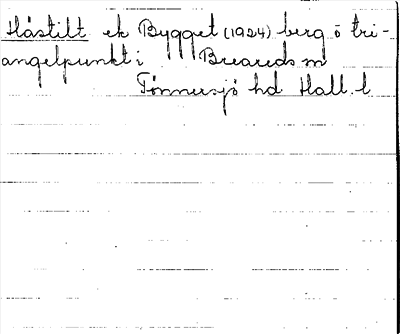 Håstilt ek Bygget (1924) berg o tri-
angelpunkt i Breareds sn
Tönnersjö hd Hall. l